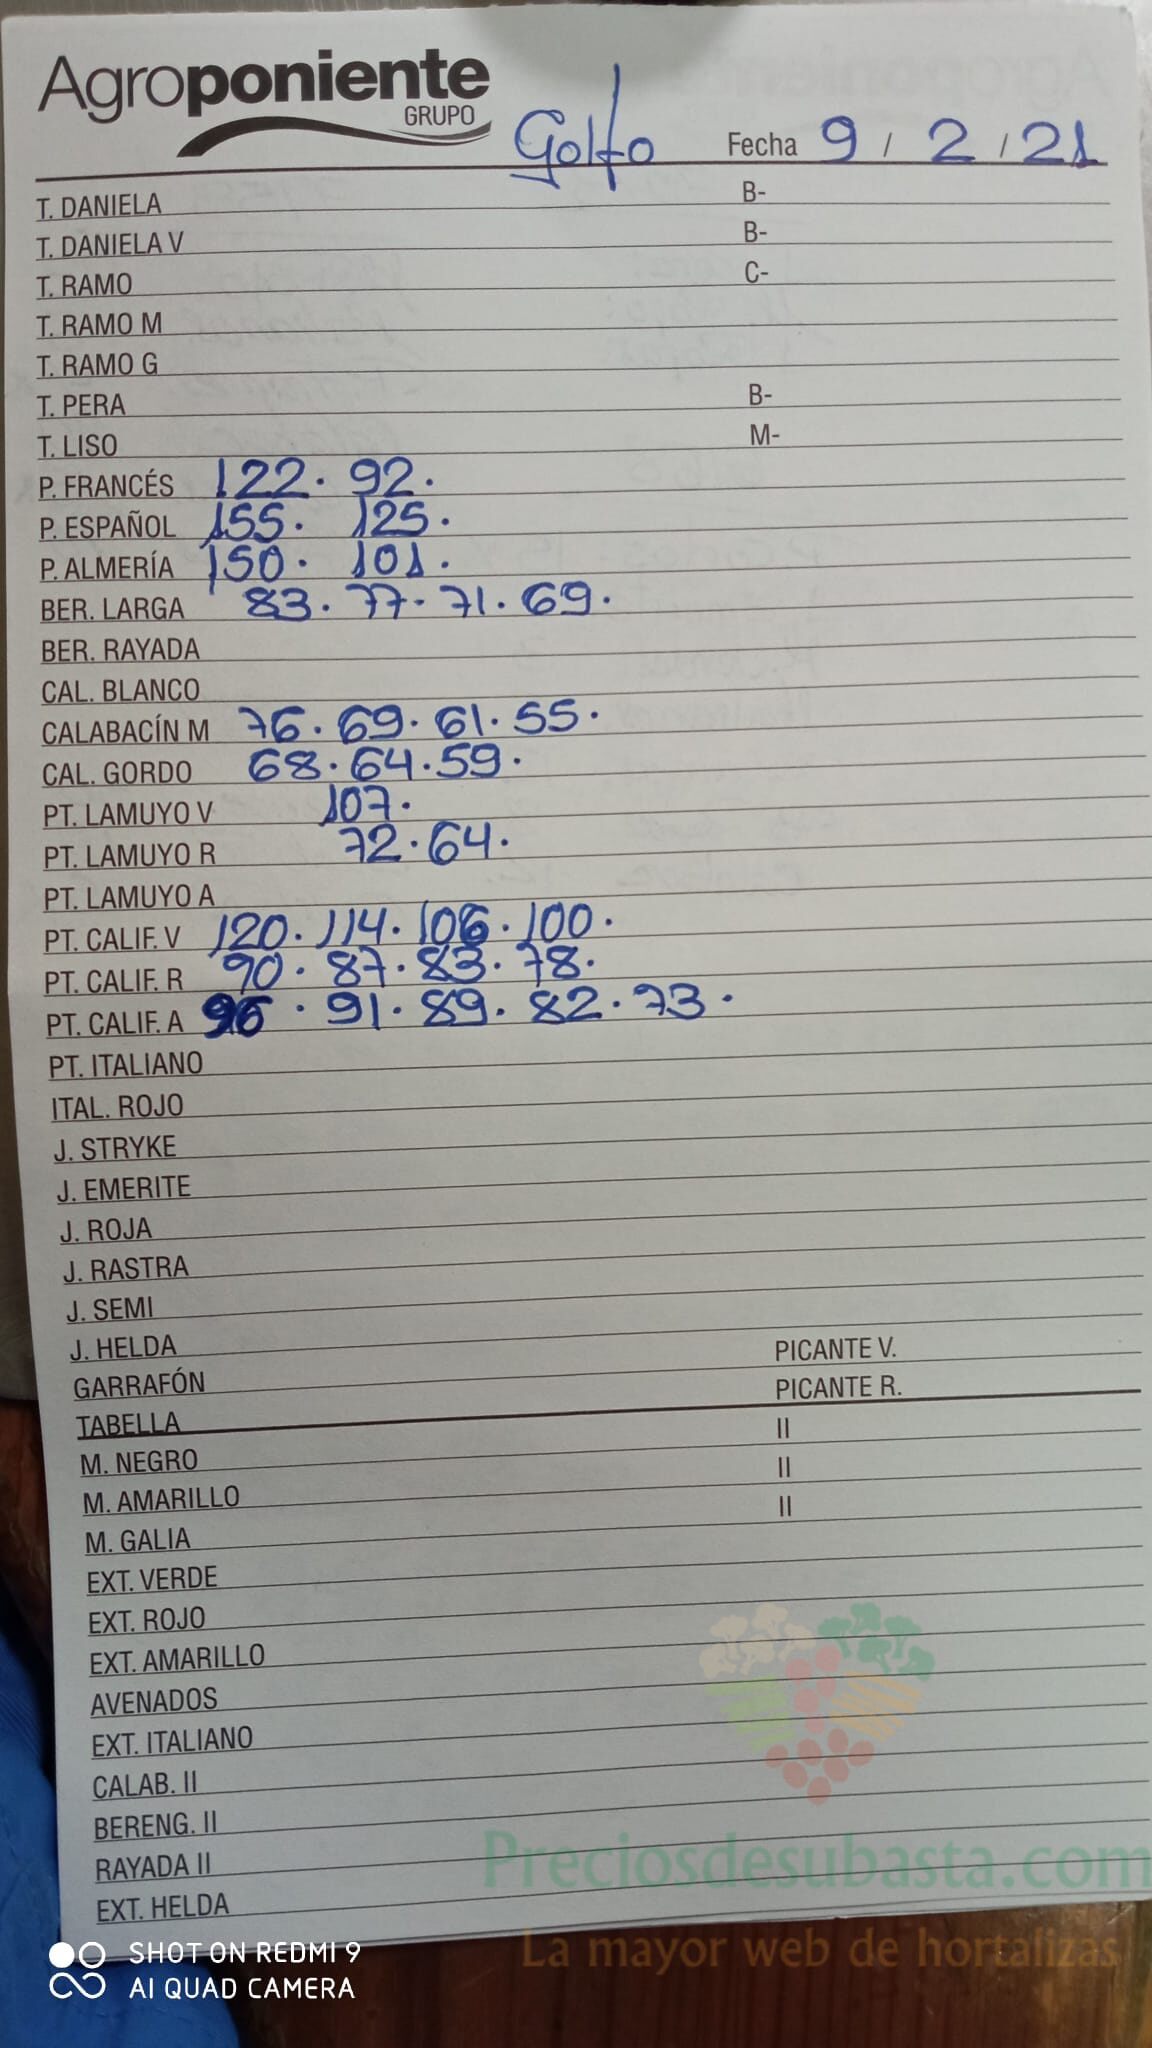 Agroponiente
GRUPO
Golfo Fecha 9 / 2 / 21
T. DANIELA B-
T. DANIELA V B-
T. RAMO C-
T. RAMO M
T. RAMO G
T. PERA B-
T. LISO M-
P. FRANCÉS 122. 92.
P. ESPAÑOL 155. 125.
P. ALMERÍA 150. 101.
BER. LARGA 83. 77. 71. 69.
BER. RAYADA
CAL. BLANCO
CALABACÍN M 76. 69. 61. 55.
CAL. GORDO 68. 64. 59.
PT. LAMUYO V 107.
PT. LAMUYO R 72. 64.
PT. LAMUYO A
PT. CALIF. V 120. 114. 106. 100.
PT. CALIF. R 90. 87. 83. 78.
PT. CALIF. A 96. 91. 89. 82. 73.
PT. ITALIANO
ITAL. ROJO
J. STRYKE
J. EMERITE
J. ROJA
J. RASTRA
J. SEMI
J. HELDA PICANTE V.
GARRAFÓN PICANTE R.
TABELLA II
M. NEGRO II
M. AMARILLO II
M. GALIA
EXT. VERDE
EXT. ROJO
EXT. AMARILLO
AVENADOS
EXT. ITALIANO
CALAB. II
BERENG. II
RAYADA II
EXT. HELDA
Preciosdesubasta.com
La mayor web de hortalizas
SHOT ON REDMI 9
AI QUAD CAMERA